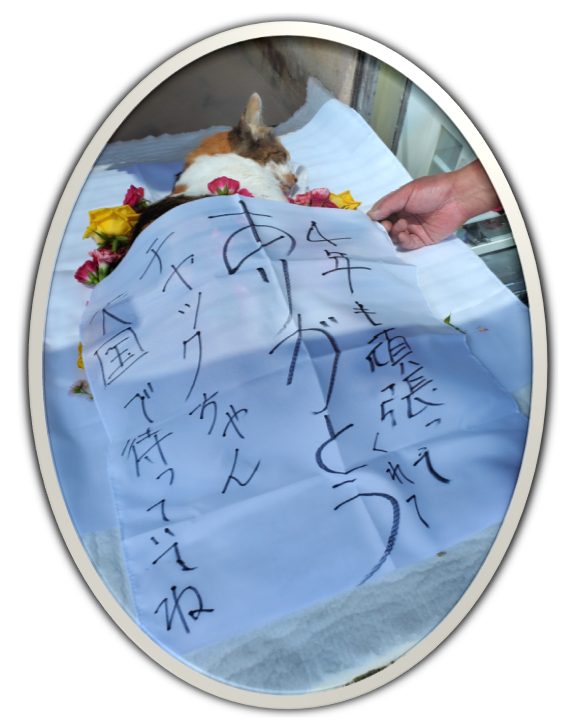 4年も頑張って
くれて
ありがとう
チャックちゃん
天国で待っていてね